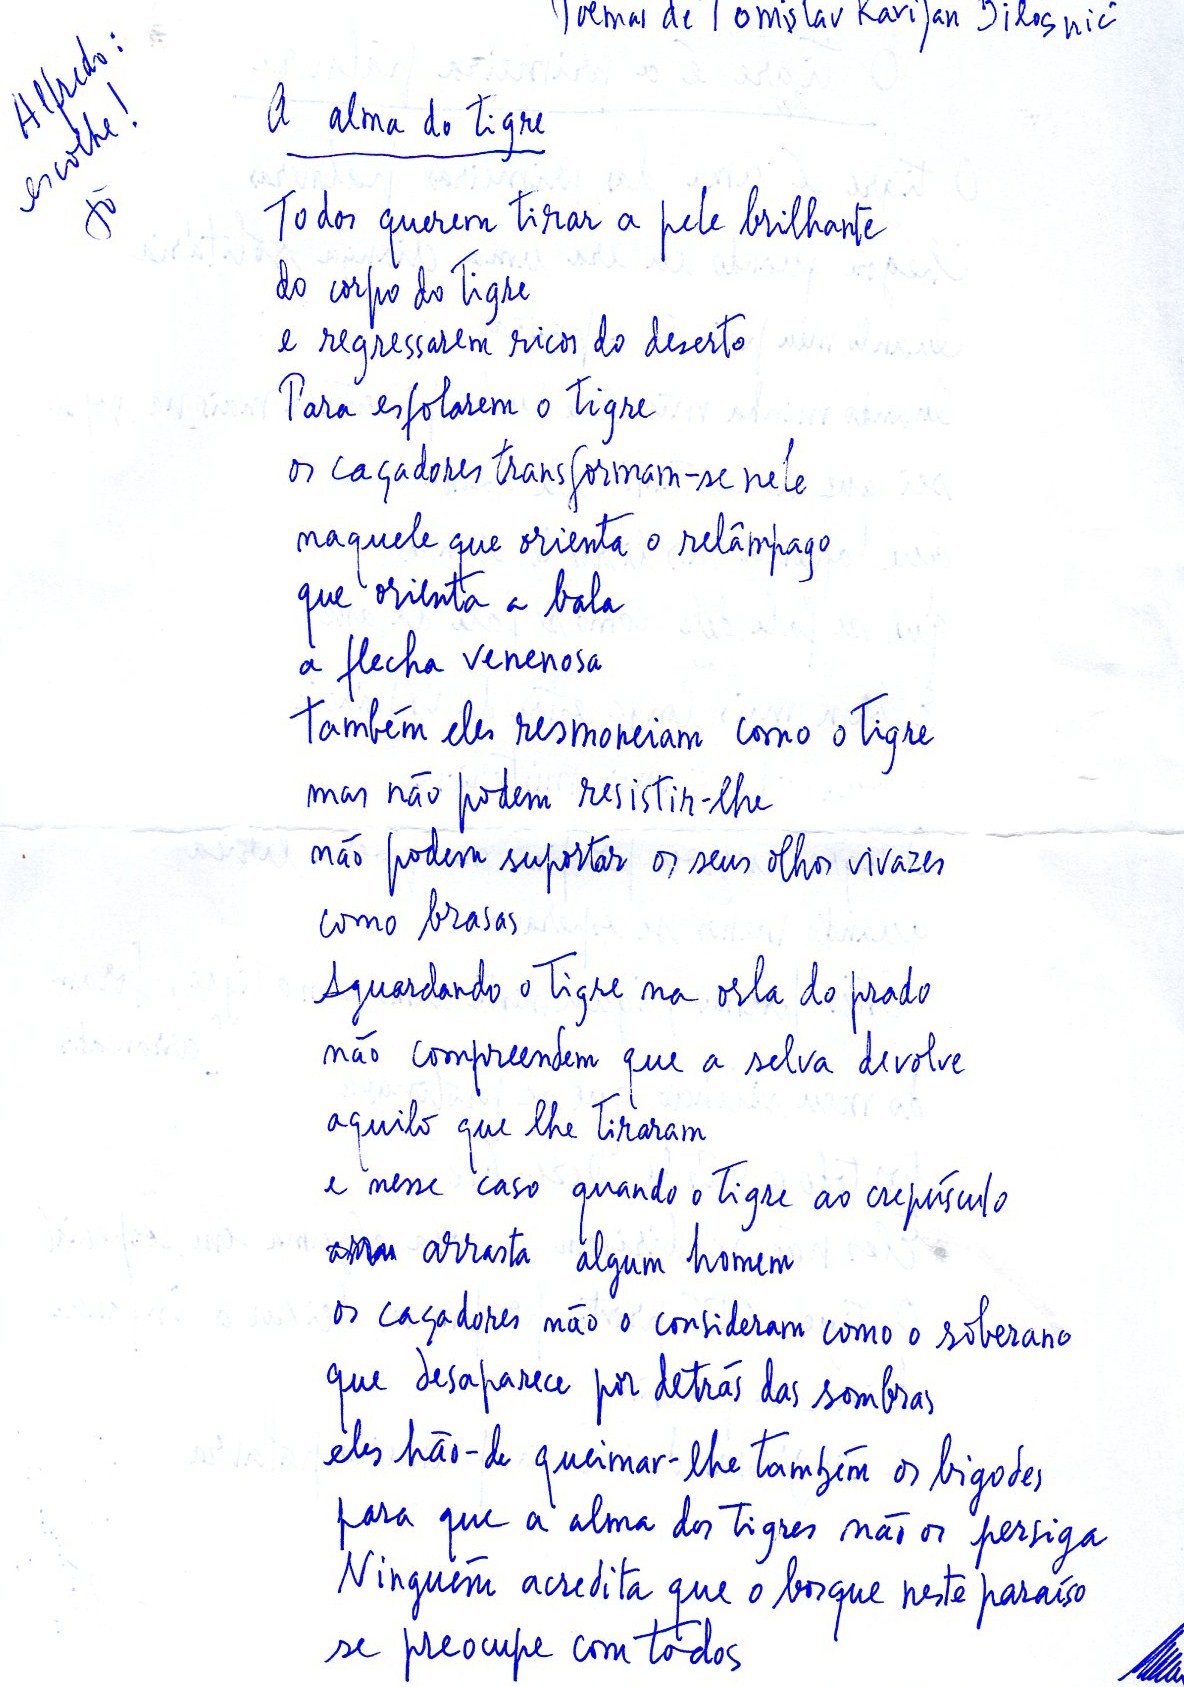 Poemas de Tomislav Marijan Bilosnić
Alfredo:
escolhe!
Jô
A alma do tigre
Todos querem tirar a pele brilhante
do corpo do tigre
e regressarem ricos do deserto
Para esfolarem o tigre
os caçadores transformam-se nele
naquele que orienta o relâmpago
que orienta a bala
a flecha venenosa
também eles resmoneiam como o tigre
mas não podem resistir-lhe
não podem suportar os seus olhos vivazes
como brasas
Aguardando o tigre na orla do prado
não compreendem que a selva devolve
aquilo que lhe tiraram
e nesse caso quando o tigre ao crepúsculo
arrasta algum homem
os caçadores não o consideram como o soberano
que desaparece por detrás das sombras
eles hão-de queimar-lhe também os bigodes
para que a alma dos tigres não os persiga
Ninguém acredita que o bosque neste paraíso
se preocupe com todos